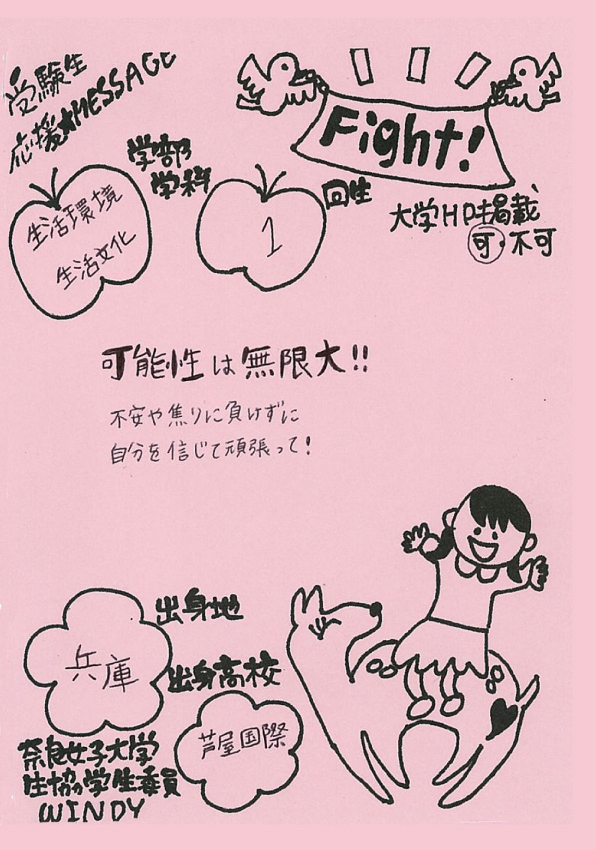 受験生
応援★MESSAGE
Fight!
学部
学科
生活環境
生活文化
1
回生
大学HP掲載
可・不可
可能性は無限大!!
不安や焦りに負けずに
自分を信じて頑張って!
出身地
兵庫
出身高校
芦屋国際
奈良女子大学
生協学生委員
WINDY